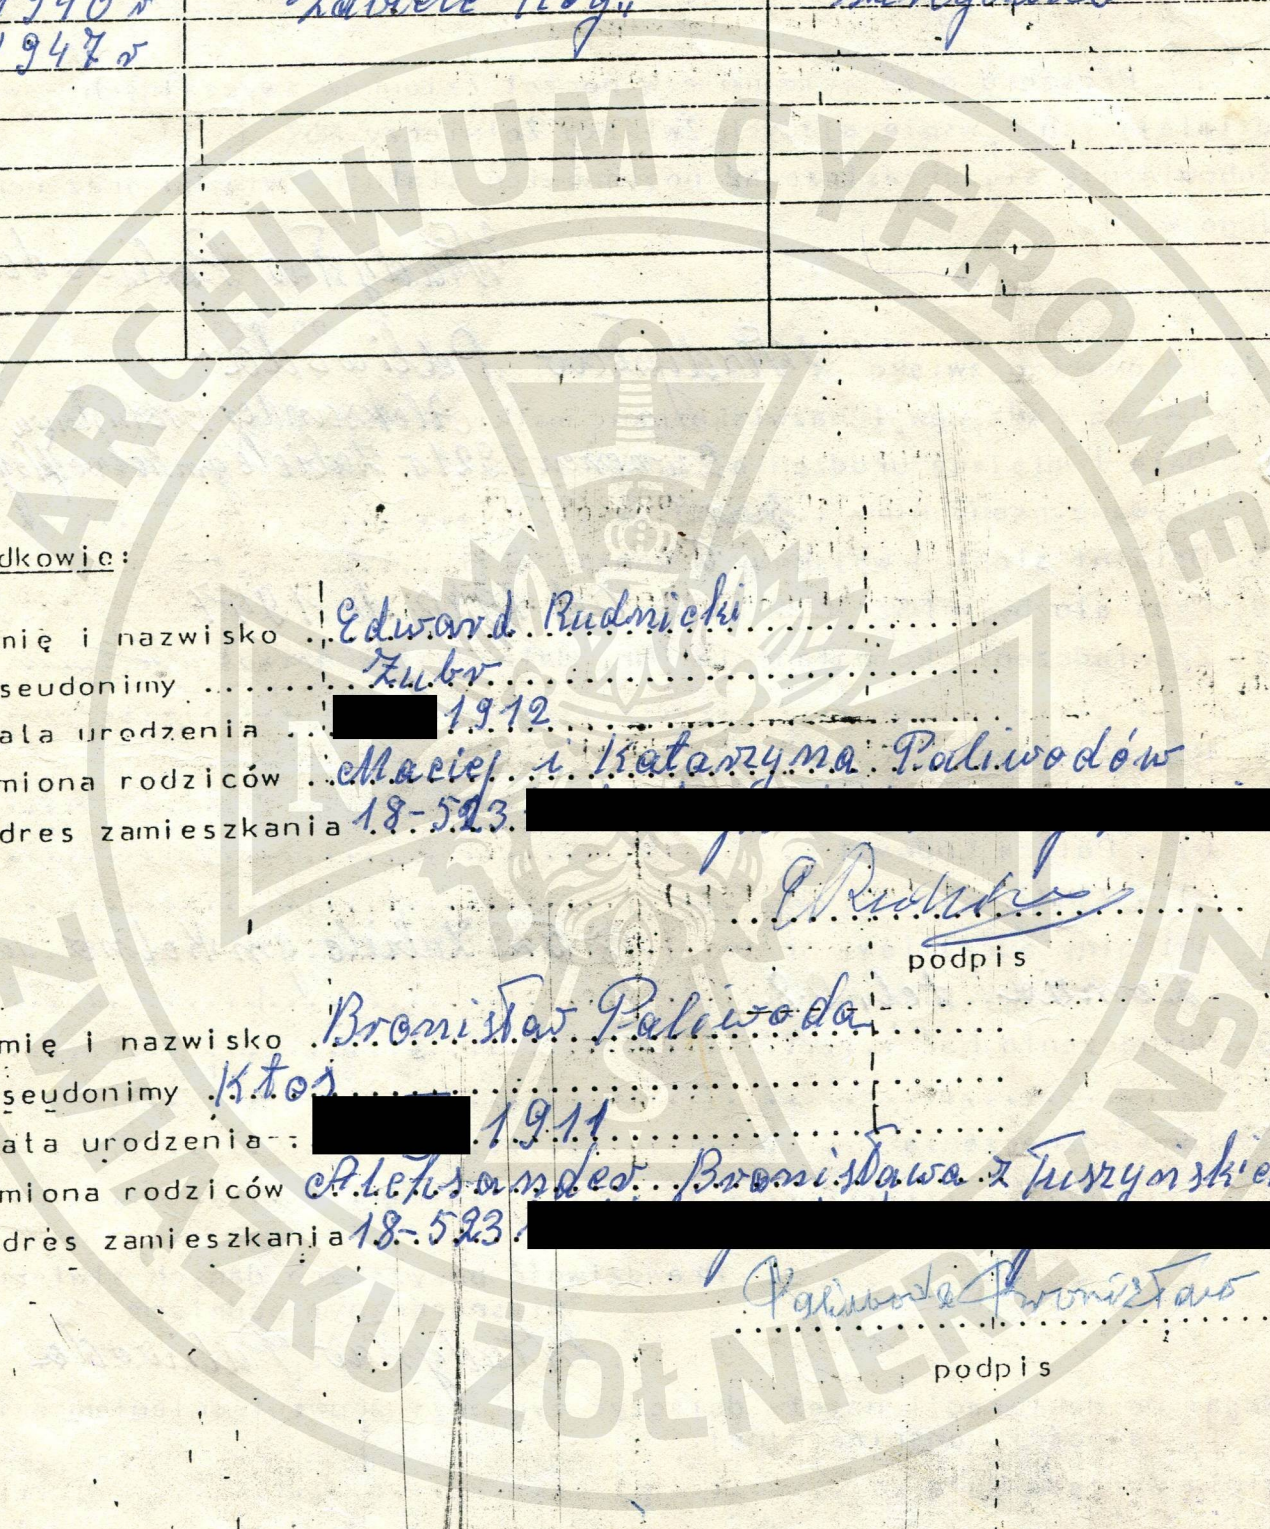 1947 r
dkowie:
nię i nazwisko Edward Rudnicki
seudonimy Żubr
ata urodzenia 1912
miona rodziców Maciej i Katarzyna Paliwodów
dres zamieszkania 18-523
podpis
mię i nazwisko Bronisław Paliwoda
seudonimy Kłos
ata urodzenia 1911
miona rodziców Aleksander Bronisława z Tuszyńskic
dres zamieszkania 18-523
Paliwoda Bronisław
podpis
ARCHIWUM CYFROWE
ZWIĄZKU ŻOŁNIERZY NSZ